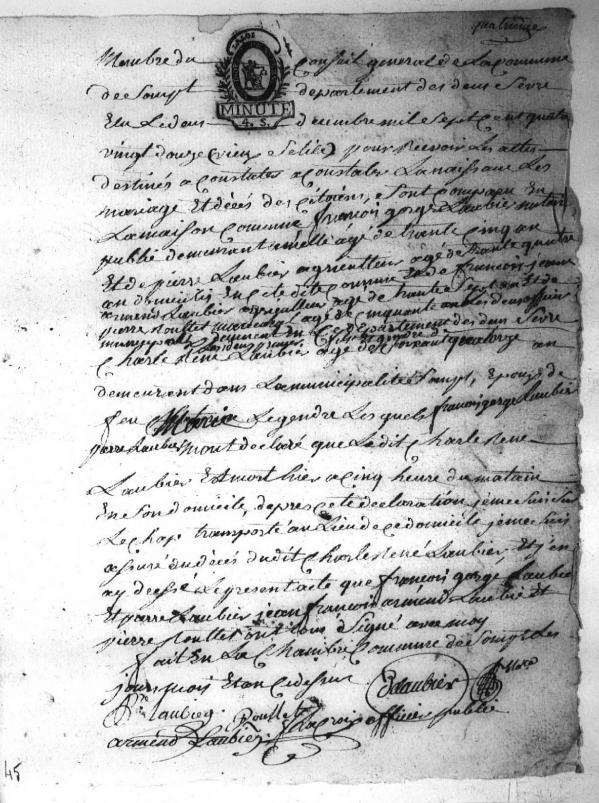 quatrième
LA LOI
Membre du Conseil general de La Commune
de Sompt departement des deux Sevre
Elu Le deux decembre mil Sept Cent quatre
vingt douze pour recevoir Les actes
destinés a Constater a Constater La naissance Les
mariage Et décés des Citoiens, Sont Comparu En
La maison Commune françois gorge Laubier notaire
publié demeurant a melle agé de trante Cinq an
Et de pierre Laubier agriculteur agé de trante quatre
an domiciliés En Cete dite Commune de francois
armend Laubier agriculteur agé de trante Sept an Et de
pierre roullet agé de Cinquante an
municipal departement des deux Sevre
Charle René Laubier agé de Soixante quatorze an
demeurant dans La municipalité Sompt, Epoux de
feu Legendre Les quels françois gorge Laubier
pierre Laubier m'ont déclaré que Ledit Charle René
Laubier Est mort hier a Cinq heure du matain
En Son domicile, depres Cete declaration je me Suis Sur
Le Chap transporté au Lieu de Ce domicile je me Suis
assuré du décés dudit Charle René Laubier, Et j'en
ay dressé Le present acte que françois gorge Laubier
Et pierre Laubier jean françois armend Laubier Et
pierre roullet ont tous Signé avec moy
fait En La Chambre Commune de Sompt Les
jours mois Et an Cidessus
Laubier
Laubier Roullet
armend Laubier officier public
MINUTE
4. S.
45